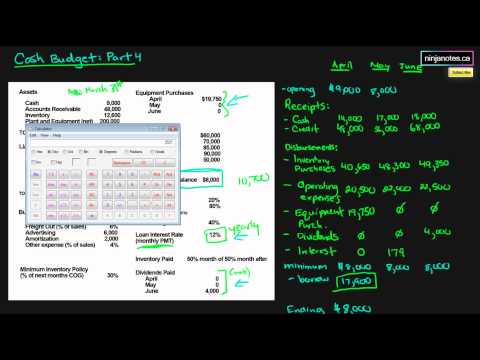 Cash Budget: Part 4
ninjanotes.ca
Subscribe
April May June
Assets
Equipment Purchases
March 31st
Cash 9,000
Accounts Receivable 48,000
Inventory 12,600
Plant and Equipment (net)
April $19,750
May 0
June 0
$60,000
70,000
90,000
50,000
Calculator
Edit View Help
$8,000
10,700
20%
80%
40%
60%
Freight Out (% of sales) 6%
Advertising 6,000
Amortization 2,000
Other expense (% of sales) 4%
Loan Interest Rate 12% yearly
(monthly PMT)
Inventory Paid 50% month of 50% month after
Minimum Inventory Policy
(% of next months COG) 30%
Dividends Paid
April 0
May 0
June 4,000
- opening $9,000 8,000
Receipts:
- Cash 14,000 17,000 18,000
- Credit 48,000 56,000 68,000
Disbursements:
- Inventory Purchases 40,650 48,300 49,350
- Operating expenses 20,500 22,000 22,500
- Equipment Purch. 19,750 Ø Ø
- Dividends Ø Ø 4,000
- Interest 0 179
minimum $8,000 8,000 8,000
- borrow 17,900
Ending $8,000